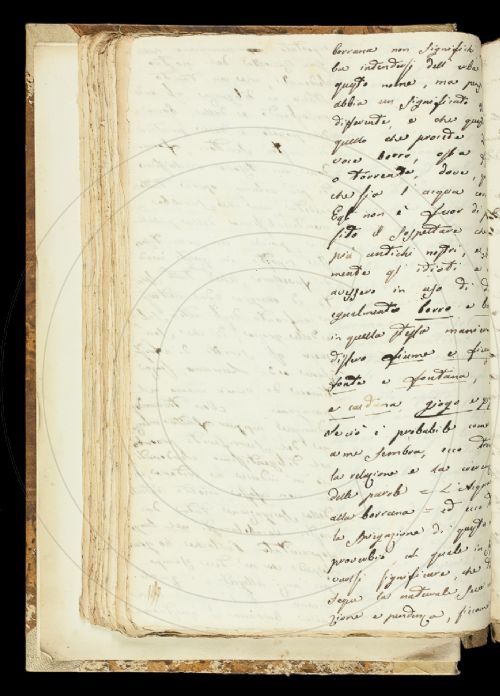 borrana non significh
ba intendersi dell' erba
questo nome, ma
abbia un significato
differente, e che
quello che procede
voce borro, ossia
o torrente, dove,
che sia l' acqua con
Egli non è fuor di
sito il sospettare che
più antichi nostri, e
mente gl' idioti
avessero in uso di d
egualmente borro e b
in quella stessa manier
dissero fiume e fiu
fonte e fontana,
e giogo e
Se ciò è probabile come
a me sembra, ecco
la relazione e la
delle parole = L'acqu
alla borrana = ed ecco
la spiegazione di questo
proverbio, al quale in
vuolsi significare, che
segue la naturale
zione e pendenza, sicom